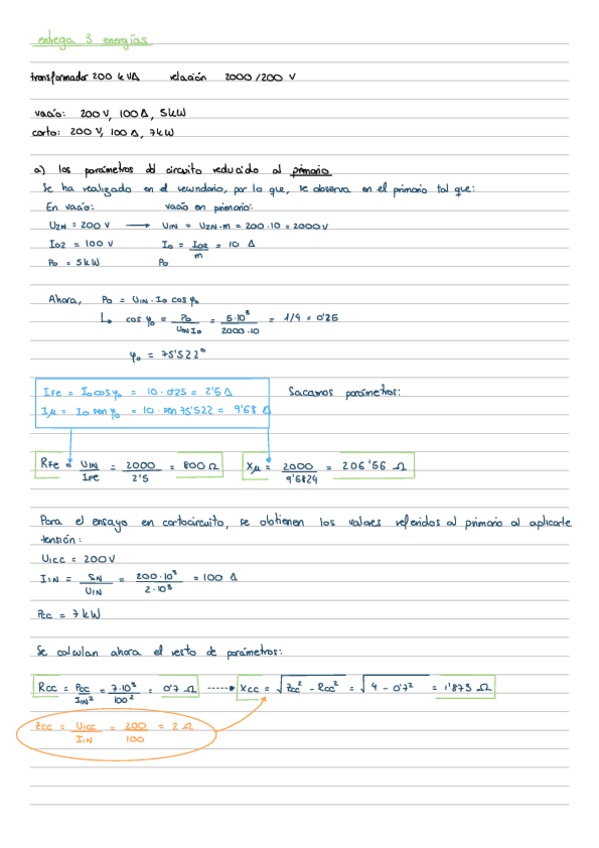 entrega 3 energías
transformador 200 kVA relación 2000/200 V
vacío: 200 V, 100 A, 5 kW
corto: 200 V, 100 A, 7 kW
a) los parámetros del circuito reducido al primario
Se ha realizado en el secundario, por lo que, se observa en el primario tal que:
En vacío: vacío en primario:
U2N = 200 V → U1N = U2N·m = 200·10 = 2000 V
I02 = 100 V I0 = I02/m = 10 A
P0 = 5 kW P0
Ahora, P0 = U1N·I0 cos φ0
↳ cos φ0 = P0/(U1N I0) = 5·10³/(2000·10) = 1/4 = 0'25
φ0 = 75'522°
IFe = I0 cos φ0 = 10·0'25 = 2'5 A Sacamos parámetros:
Iμ = I0 sen φ0 = 10·sen 75'522 = 9'68 A
RFe = U1N/IFe = 2000/2'5 = 800 Ω Xμ = 2000/9'6824 = 206'56 Ω
Para el ensayo en cortocircuito, se obtienen los valores referidos al primario al aplicarle
tensión:
U1cc = 200 V
I1N = SN/U1N = 200·10³/2·10³ = 100 A
Pcc = 7 kW
Se calculan ahora el resto de parámetros:
Rcc = Pcc/I1N² = 7·10³/100² = 0'7 Ω → Xcc = √(Zcc² - Rcc²) = √(4 - 0'7²) = 1'873 Ω
Zcc = U1cc/I1N = 200/100 = 2 Ω